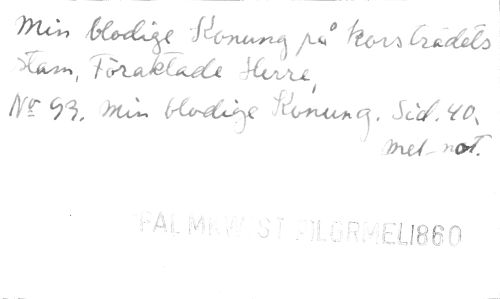 Min blodige Konung på korsträdets
stam, Föraktade Herre,
No 93. Min blodige Konung. Sid. 40.
mel-not.
PALMKV ST PILGRMEL1860